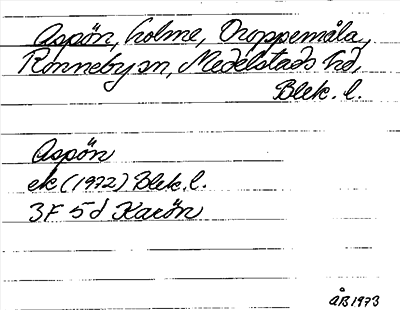 Aspön, holme, Droppemåla,
Ronneby sn, Medelstads hd,
Blek. l.
Aspön
ek (1972) Blek. l.
3F 5d Karön
ÅB 1973